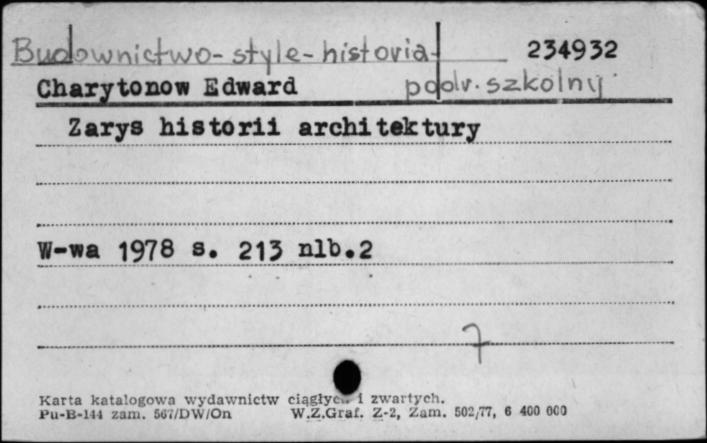 Budownictwo-style-historia- 234932
Charytonow Edward podr. szkolny
Zarys historii architektury
W-wa 1978 s. 213 nlb.2
7
Karta katalogowa wydawnictw ciągłych i zwartych.
Pu-B-144 zam. 567/DW/On W.Z.Graf. Z-2, Zam. 502/77, 6 400 000